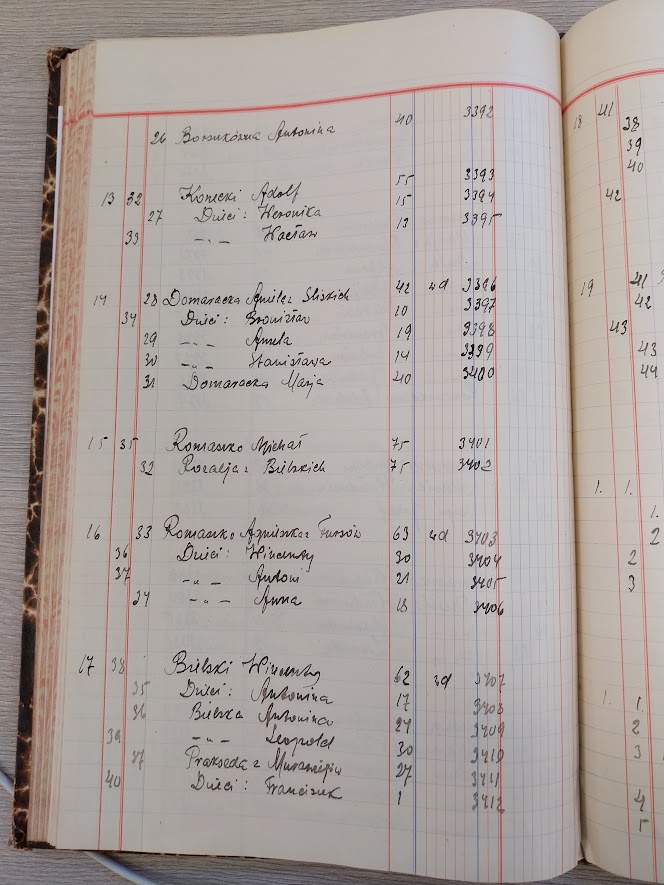 26 Borsukówna Antonina 40 3392
13 32 Konecki Adolf 55 3393
27 Dzieci: Weronika 15 3394
33 -„- Wacław 13 3395
14 28 Domaracka Amilia z 42 wd 3396
34 Dzieci: Bronisław 10 3397
29 -„- Amela 19 3398
30 -„- Stanisława 14 3399
31 Domaracka Marja 40 3400
15 35 Romaszko Michał 75 3401
32 Rozalja z Bielskich 75 3402
16 33 Romaszko Agnieszka z 63 wd 3403
36 Dzieci: Wincenty 30 3404
37 -„- Antoni 21 3405
34 -„- Anna 18 3406
17 38 Bielski Wincenty 62 wd 3407
35 Dzieci: Antonina 17 3408
36 Bielska Antonina 24 3409
39 -„- Leopold 30 3410
37 Prakseda z 27 3411
40 Dzieci: Franciszek 1 3412
18 41 38
39
40
42
19 41
42
43
43
44
1. 1.
1.
2
2
3
1. 1.
2
3
4
5